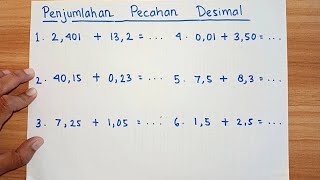 Penjumlahan Pecahan Desimal
1. 2,401 + 13,2 = ...
4. 0,01 + 3,50 = ...
2. 40,15 + 0,23 = ...
5. 7,5 + 8,3 = ...
3. 7,25 + 1,05 = ...
6. 1,5 + 2,5 = ...